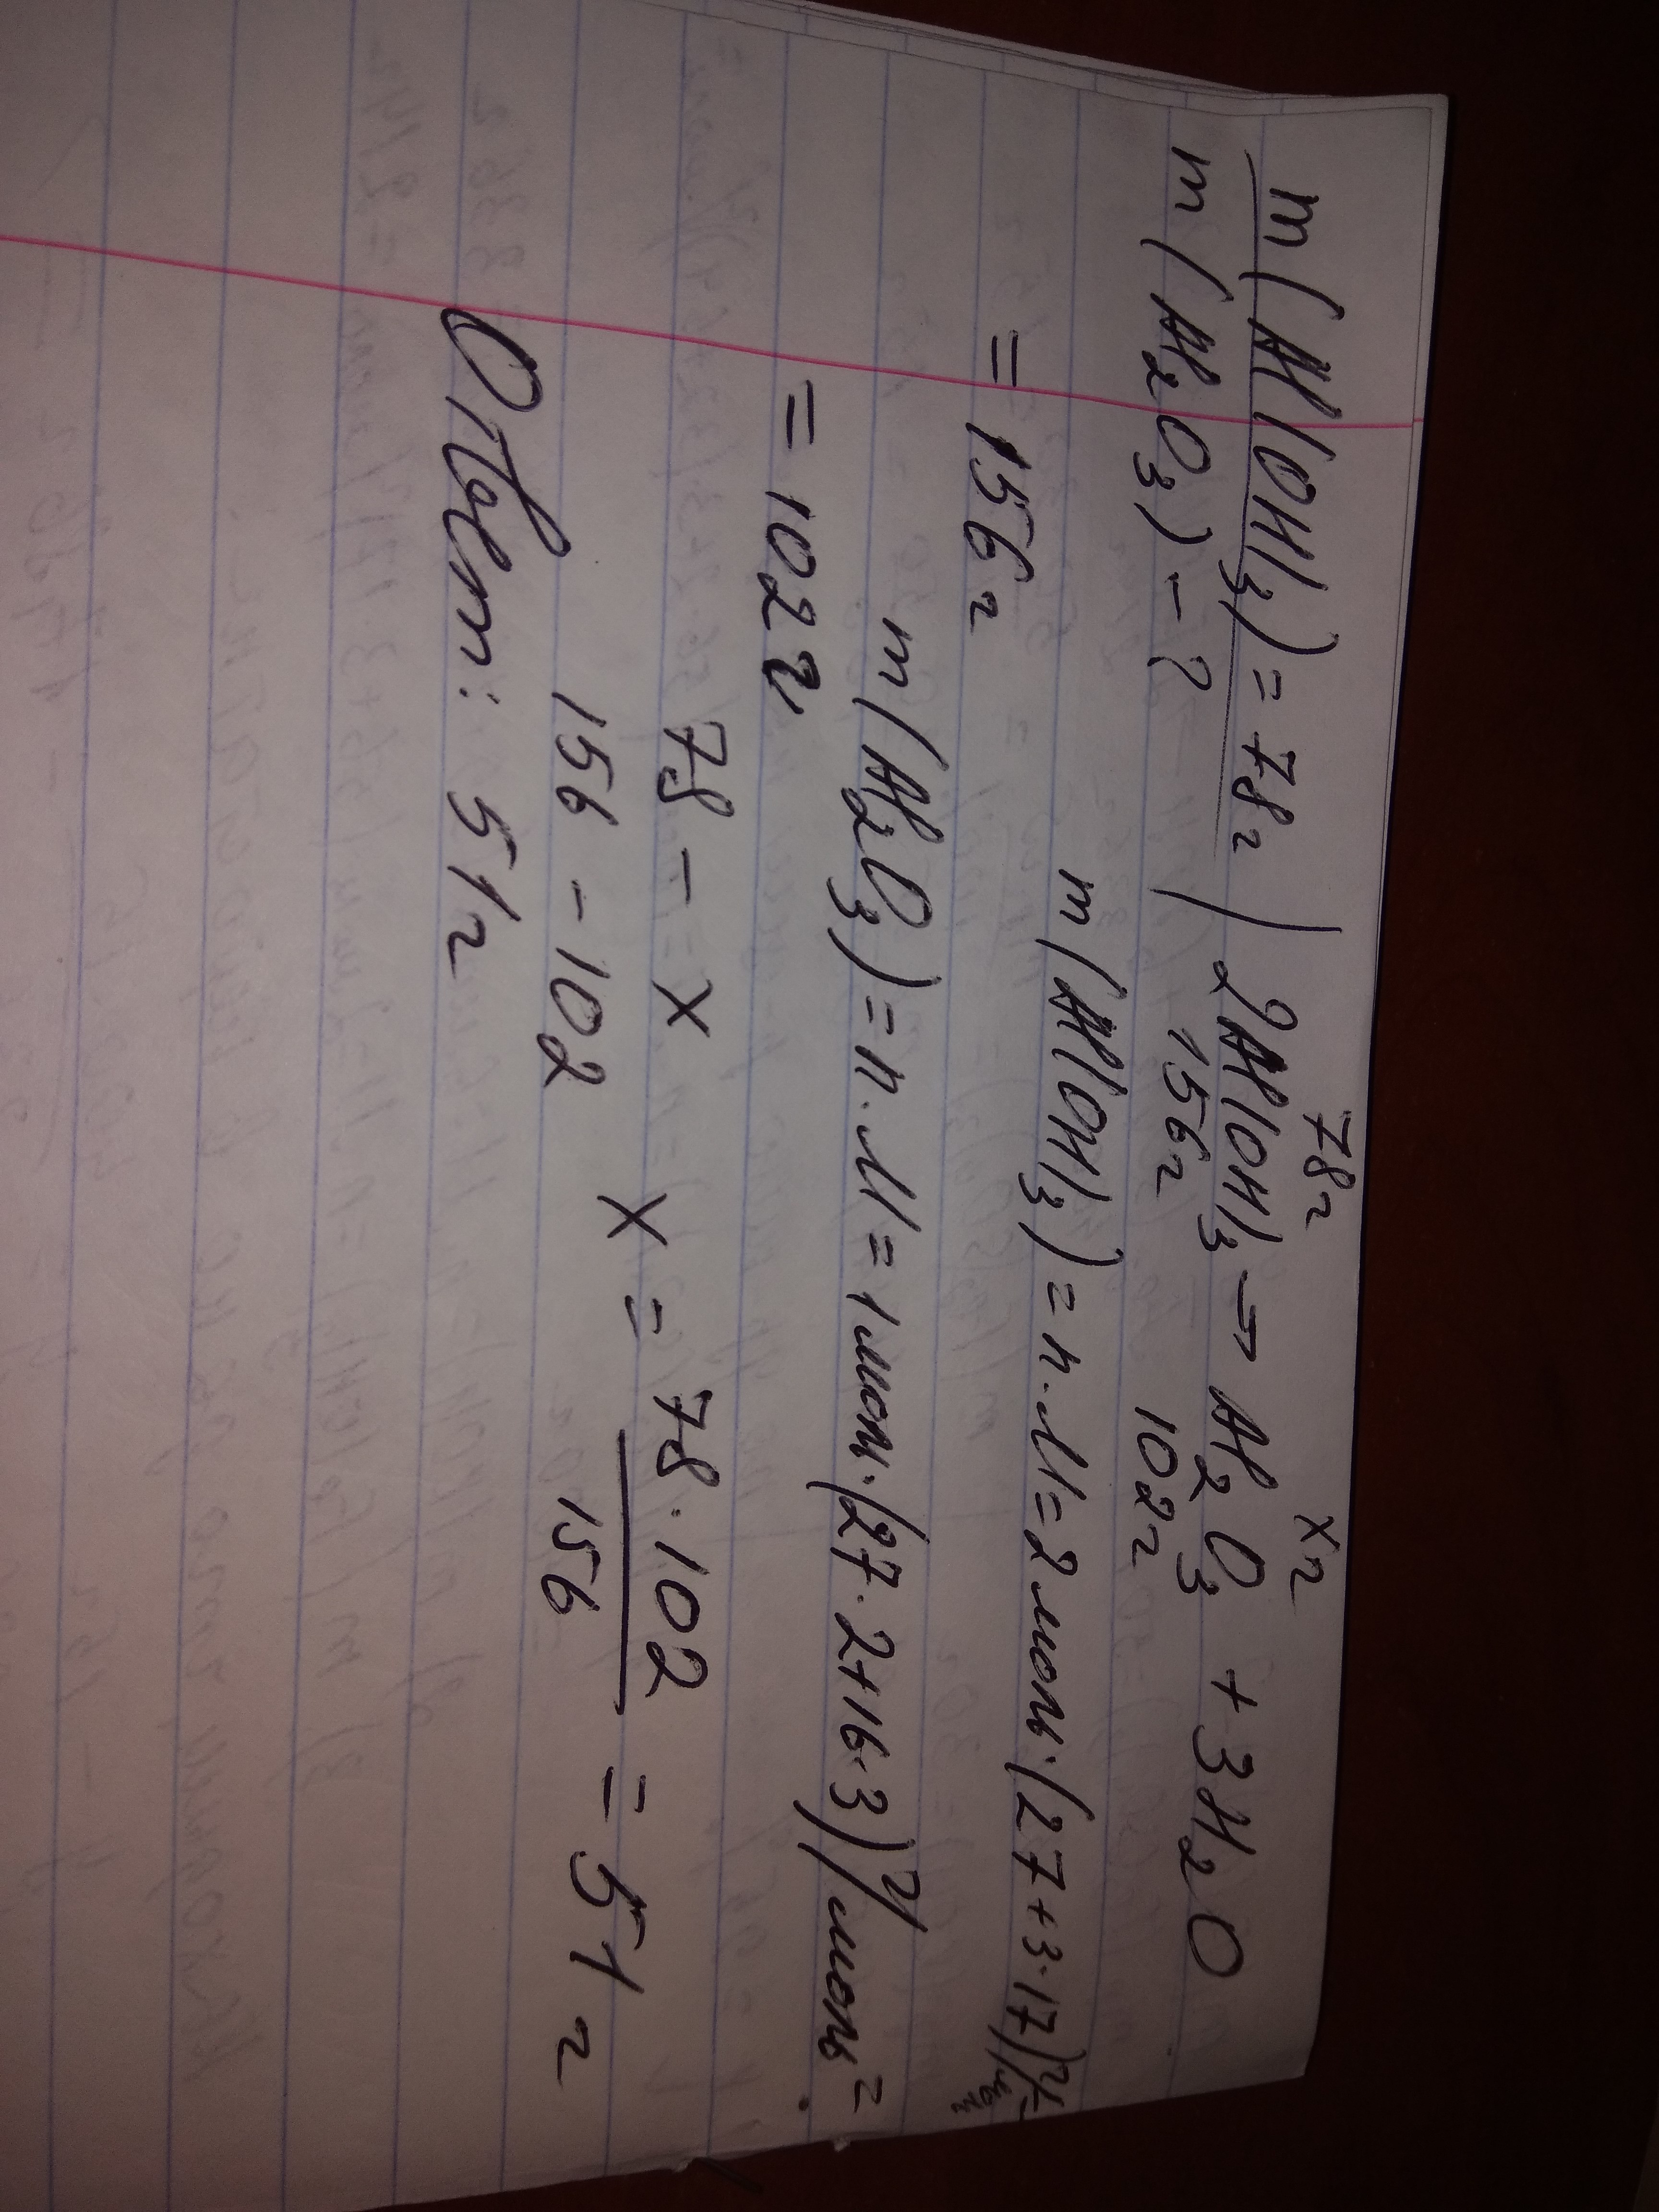 m(Al(OH)₃) = 78г
m(Al₂O₃) - ?
78г xг
2Al(OH)₃ → Al₂O₃ + 3H₂O
156г 102г
m(Al(OH)₃) = n·M = 2моль·(27+3·17)г/моль =
= 156г
m(Al₂O₃) = n·M = 1моль·(27·2+16·3)г/моль =
= 102г
78 - x
156 - 102
x = 78·102/156 = 51г
Ответ: 51г